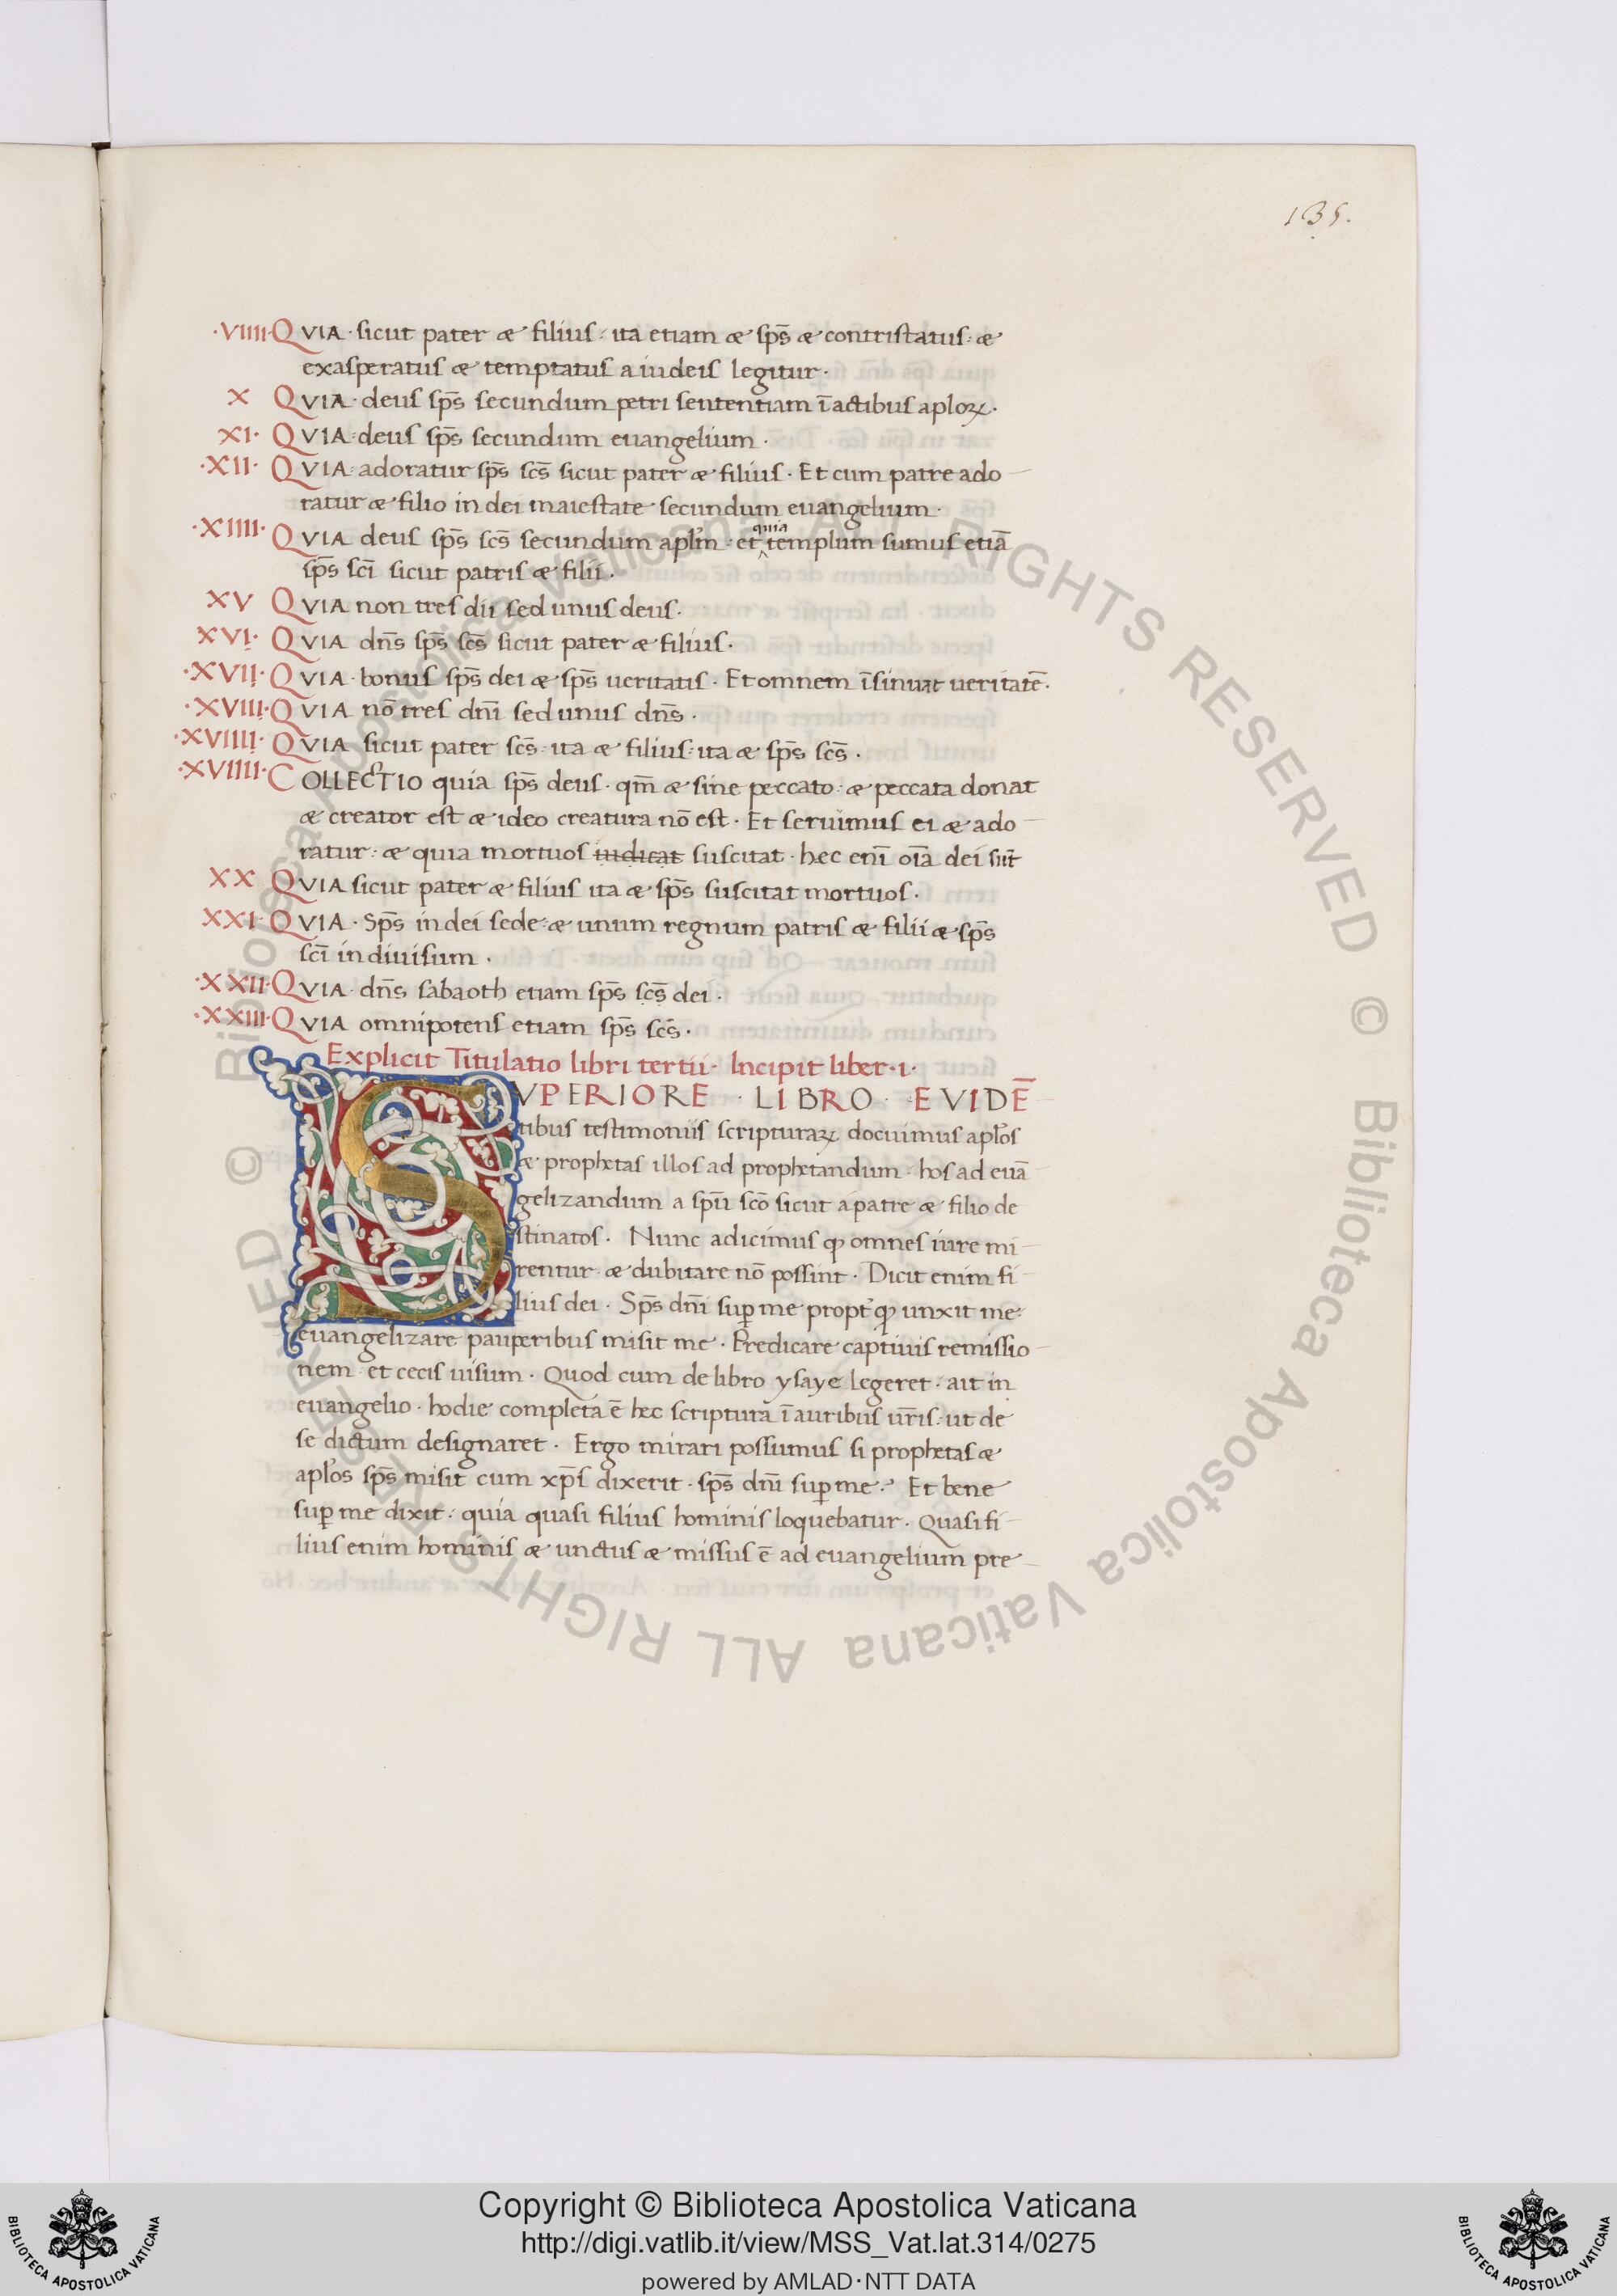 135.
·VIIII· QVIA · sicut pater æ filius : ita etiam æ sps̄ æ contristatus : æ
exasperatus æ temptatus a iudeis legitur ·
X QVIA · deus sps̄ secundum petri sententiam ī actibus aploꝝ ·
XI· QVIA : deus sps̄ secundum euangelium ·
·XII· QVIA : adoratur sps̄ scs̄ sicut pater æ filius · Et cum patre ado
ratur æ filio in dei maiestate · secundum euangelium ·
·XIIII· QVIA deus sps̄ scs̄ secundum apłm · et quia templum sumus etiā
sps̄ scī sicut patris æ filii ·
XV QVIA non tres dii sed unus deus ·
XVI· QVIA dn̄s sps̄ scs̄ sicut pater æ filius ·
·XVII· QVIA · bonus sps̄ dei æ sps̄ ueritatis · Et omnem īsinuat ueritatē ·
·XVIII· QVIA nō tres dn̄i sed unus dn̄s ·
·XVIIII· QVIA sicut pater scs̄ : ita æ filius : ita æ sps̄ scs̄ ·
·XVIIII· COLLECTIO quia sps̄ deus · qm̄ æ sine peccato : æ peccata donat
æ creator est æ ideo creatura nō est · Et seruimus ei æ ado
ratur : æ quia mortuos iudicat suscitat · hec enī oīa dei sūt
XX QVIA sicut pater æ filius ita æ sps̄ suscitat mortuos ·
XXI· QVIA · Sps̄ in dei sede : æ unum regnum patris æ filii æ sps̄
scī indiuisum ·
·XXII· QVIA · dn̄s sabaoth etiam sps̄ scs̄ dei ·
·XXIII· QVIA omnipotens etiam sps̄ scs̄ ·
Explicit Titulatio libri tertii · Incipit liber · i ·
SVPERIORE · LIBRO · EVIDĒ
tibus testimoniis scripturaꝝ docuimus apłos
æ prophetas illos ad prophetandum · hos ad euā
gelizandum a spū scō sicut a patre æ filio de
stinatos · Nunc adicimus ꝙ omnes iure mi
rentur · æ dubitare nō possint · Dicit enim fi
lius dei · Sps̄ dn̄i suꝑ me propt̓ ꝙ unxit me :
euangelizare pauperibus misit me · Predicare captiuis remissio
nem · et cecis uisum · Quod cum de libro ysaye legeret · ait in
euangelio · hodie completa ē hec scriptura ī auribus ur̄is : ut de
se dictum designaret · Ergo mirari possumus si prophetas æ
apłos sps̄ misit cum xp̄s dixerit · sps̄ dn̄i suꝑ me ? Et bene
suꝑ me dixit : quia quasi filius hominis loquebatur · Quasi fi
lius enim hominis æ unctus æ missus ē ad euangelium pre
© Biblioteca Apostolica Vaticana ALL RIGHTS RESERVED © Biblioteca Apostolica Vaticana ALL RIGHTS RESERVED
Copyright © Biblioteca Apostolica Vaticana
http://digi.vatlib.it/view/MSS_Vat.lat.314/0275
powered by AMLAD·NTT DATA
BIBLIOTECA APOSTOLICA VATICANA
BIBLIOTECA APOSTOLICA VATICANA